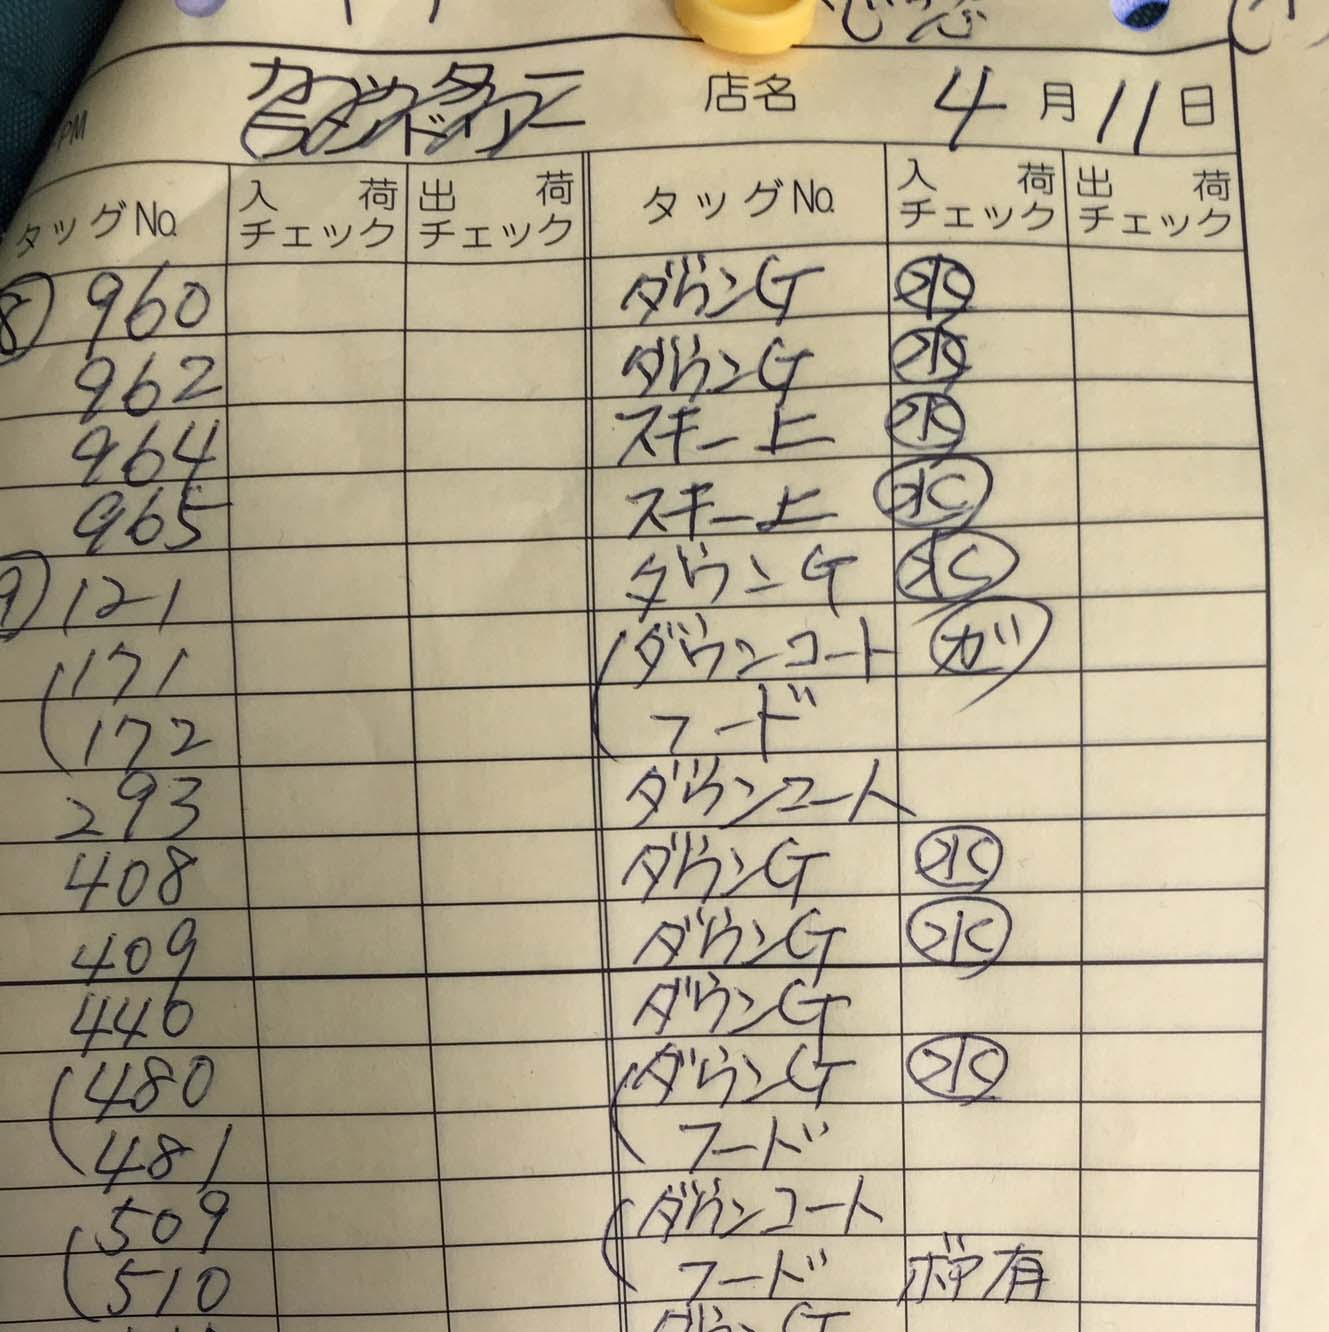 店名 4月11日
タッグNo. 入荷チェック 出荷チェック タッグNo. 入荷チェック 出荷チェック
⑧ 960 ダウンG ㊌
962 ダウンG ㊌
964 スキー上 ㊌
965 スキー上 ㊌
⑨ 121 ダウンG ㊌
(171 (ダウンコート ガ
172 フード
293 ダウンコート
408 ダウンG ㊌
409 ダウンG ㊌
440 ダウンG
(480 (ダウンG ㊌
481 フード
(509 (ダウンコート
510 フード ボア有
ダウンG